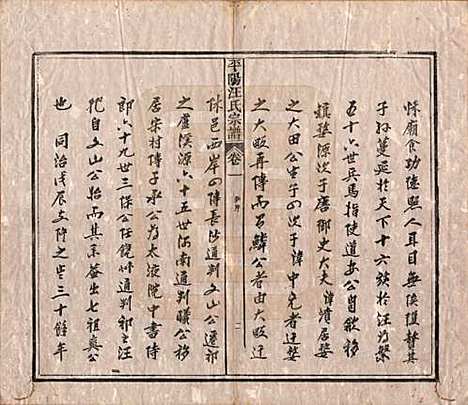 怵廟食功德照人耳目無俟復贊其
子孫蔓延於天下十六族於江為繁
五十六世兵馬指使道安公自歙移
婺源次子唐御史大夫濆居婺
之大田公生子四次子中元者遷婺
之大畈再傳而若鱗公者由大畈遷
平陽汪氏宗譜 卷一 新序 二
休邑西岸四傳長沙通判文山公遷祁
之盧溪源六十五世河南通判曦公移
居宋村傳子承公為太液院中書侍
郎六十九世三保公任饒州通判祁之汪
花自文山公始而其系并出七祖奭公
也同治戊辰文降之生三十餘年